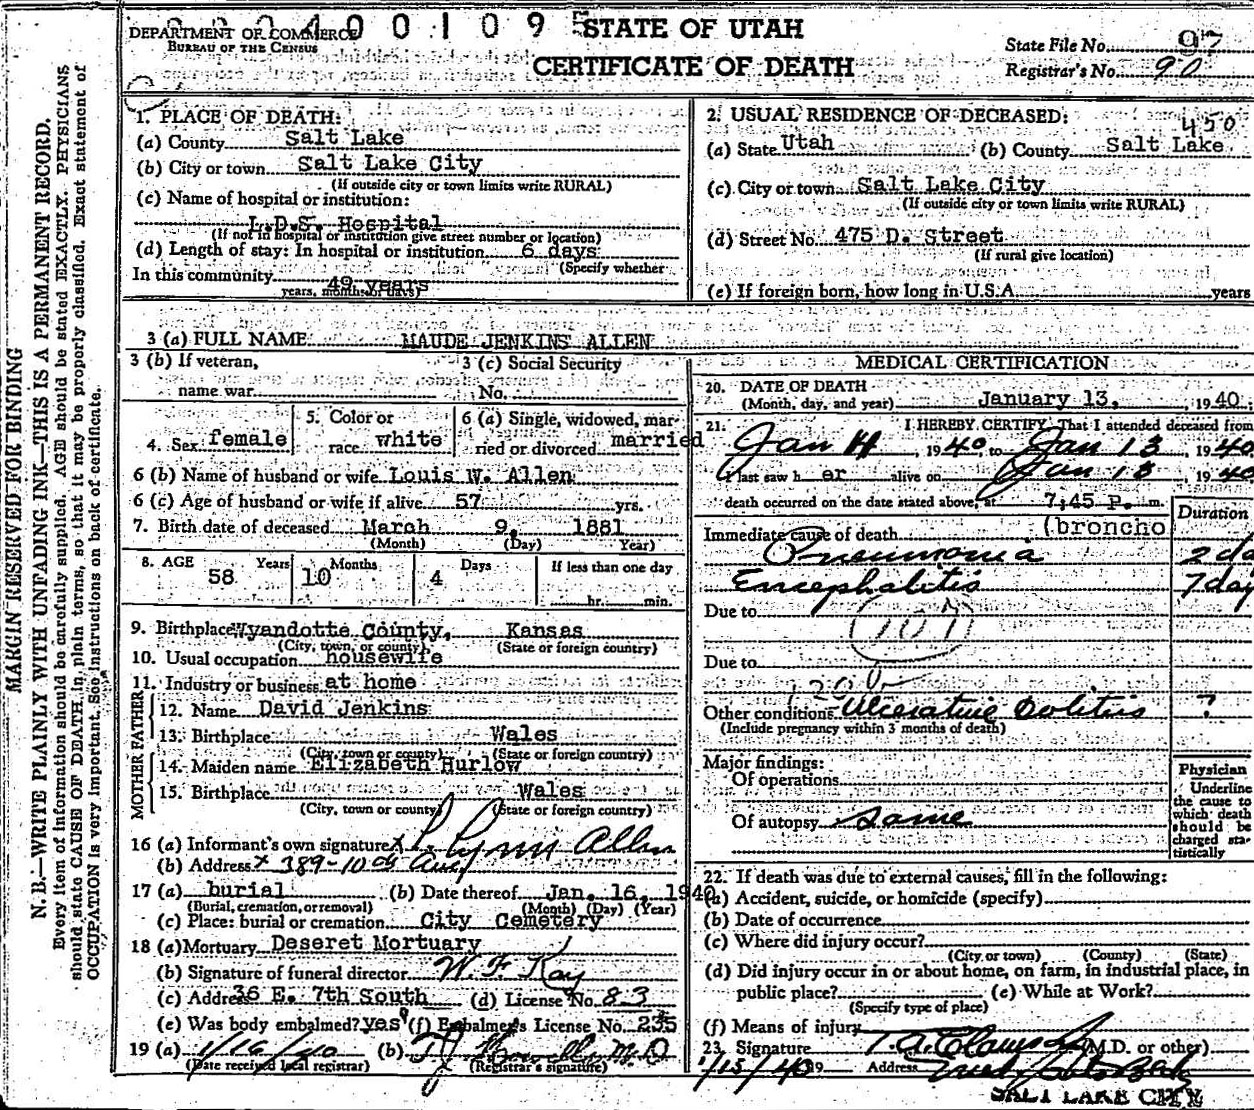 DEPARTMENT OF COMMERCE
BUREAU OF THE CENSUS
STATE OF UTAH
CERTIFICATE OF DEATH
State File No. 97
Registrar's No. 90
MARGIN RESERVED FOR BINDING
N. B.—WRITE PLAINLY WITH UNFADING INK—THIS IS A PERMANENT RECORD.
Every item of information should be carefully supplied. AGE should be stated EXACTLY. PHYSICIANS
should state CAUSE OF DEATH in plain terms, so that it may be properly classified. Exact statement of
OCCUPATION is very important. See instructions on back of certificate.
1. PLACE OF DEATH:
(a) County Salt Lake
(b) City or town Salt Lake City
(If outside city or town limits write RURAL)
(c) Name of hospital or institution:
L.D.S. Hospital
(If not in hospital or institution give street number or location)
(d) Length of stay: In hospital or institution 6 days
(Specify whether
In this community 49 years
years, months or days)
2. USUAL RESIDENCE OF DECEASED:
450
(a) State Utah (b) County Salt Lake
(c) City or town Salt Lake City
(If outside city or town limits write RURAL)
(d) Street No. 475 D. Street
(If rural give location)
(e) If foreign born, how long in U.S.A. years
3 (a) FULL NAME MAUDE JENKINS ALLEN
3 (b) If veteran,
name war
3 (c) Social Security
No.
4. Sex female
5. Color or
race white
6 (a) Single, widowed, mar-
ried or divorced married
6 (b) Name of husband or wife Louis W. Allen
6 (c) Age of husband or wife if alive 57 yrs.
7. Birth date of deceased March 9, 1881
(Month) (Day) Year)
8. AGE Years Months Days If less than one day
58 10 4
hr. min.
9. Birthplace Wyandotte County, Kansas
(City, town, or county) (State or foreign country)
10. Usual occupation housewife
11. Industry or business at home
FATHER
12. Name David Jenkins
13. Birthplace Wales
(City, town or county) (State or foreign country)
MOTHER
14. Maiden name Elizabeth Hurlow
15. Birthplace Wales
(City, town or county) (State or foreign country)
16 (a) Informant's own signature x Allen
(b) Address x 389-10th Ave
17 (a) burial (b) Date thereof Jan. 16, 1940
(Burial, cremation, or removal) (Month) (Day) (Year)
(c) Place: burial or cremation City Cemetery
18 (a) Mortuary Deseret Mortuary
(b) Signature of funeral director W. F. Kay
(c) Address 36 E. 7th South (d) License No. 83
(e) Was body embalmed? yes (f) Embalmer's License No. 235
19 (a) 1/16/40 (b) M.D
(Date received local registrar) (Registrar's signature)
MEDICAL CERTIFICATION
20. DATE OF DEATH
(Month, day, and year) January 13, 1940.
21. I HEREBY CERTIFY, That I attended deceased from
Jan 1940 to Jan 13 1940
I last saw h er alive on Jan 13 1940
death occurred on the date stated above, at 7:45 P. m.
Duration
Immediate cause of death (broncho
Pneumonia 2 da
Encephalitis 7 day
Due to
107
Due to
120 b
Other conditions Ulcerative Colitis ?
(Include pregnancy within 3 months of death)
Major findings:
Of operations
Of autopsy Same
Physician
Underline
the cause to
which death
should be
charged sta-
tistically
22. If death was due to external causes, fill in the following:
(a) Accident, suicide, or homicide (specify)
(b) Date of occurrence
(c) Where did injury occur?
(City or town) (County) (State)
(d) Did injury occur in or about home, on farm, in industrial place, in
public place? (e) While at Work?
(Specify type of place)
(f) Means of injury
23. Signature (M.D. or other)
1/15/40 19 Address
SALT LAKE CITY